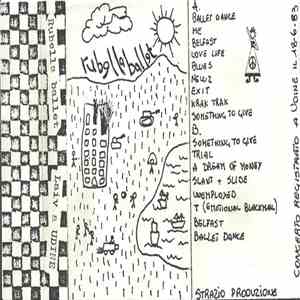 rubella ballet
A.
BALLET DANCE
ME
BELFAST
LOVE LIFE
BLUES
NEWZ
EXIT
KRAK TRAK
SOMETHING TO GIVE
B.
SOMETHING TO GIVE
TRIAL
A DREAM OF MONEY
SLANT + SLIDE
UNEMPLOYED
T (EMOTIONAL BLACKMAIL)
BELFAST
BALLET DANCE
STRAZIO PRODUZIONE
CONCERTO REGISTRATO A UDINE IL 18-6-83